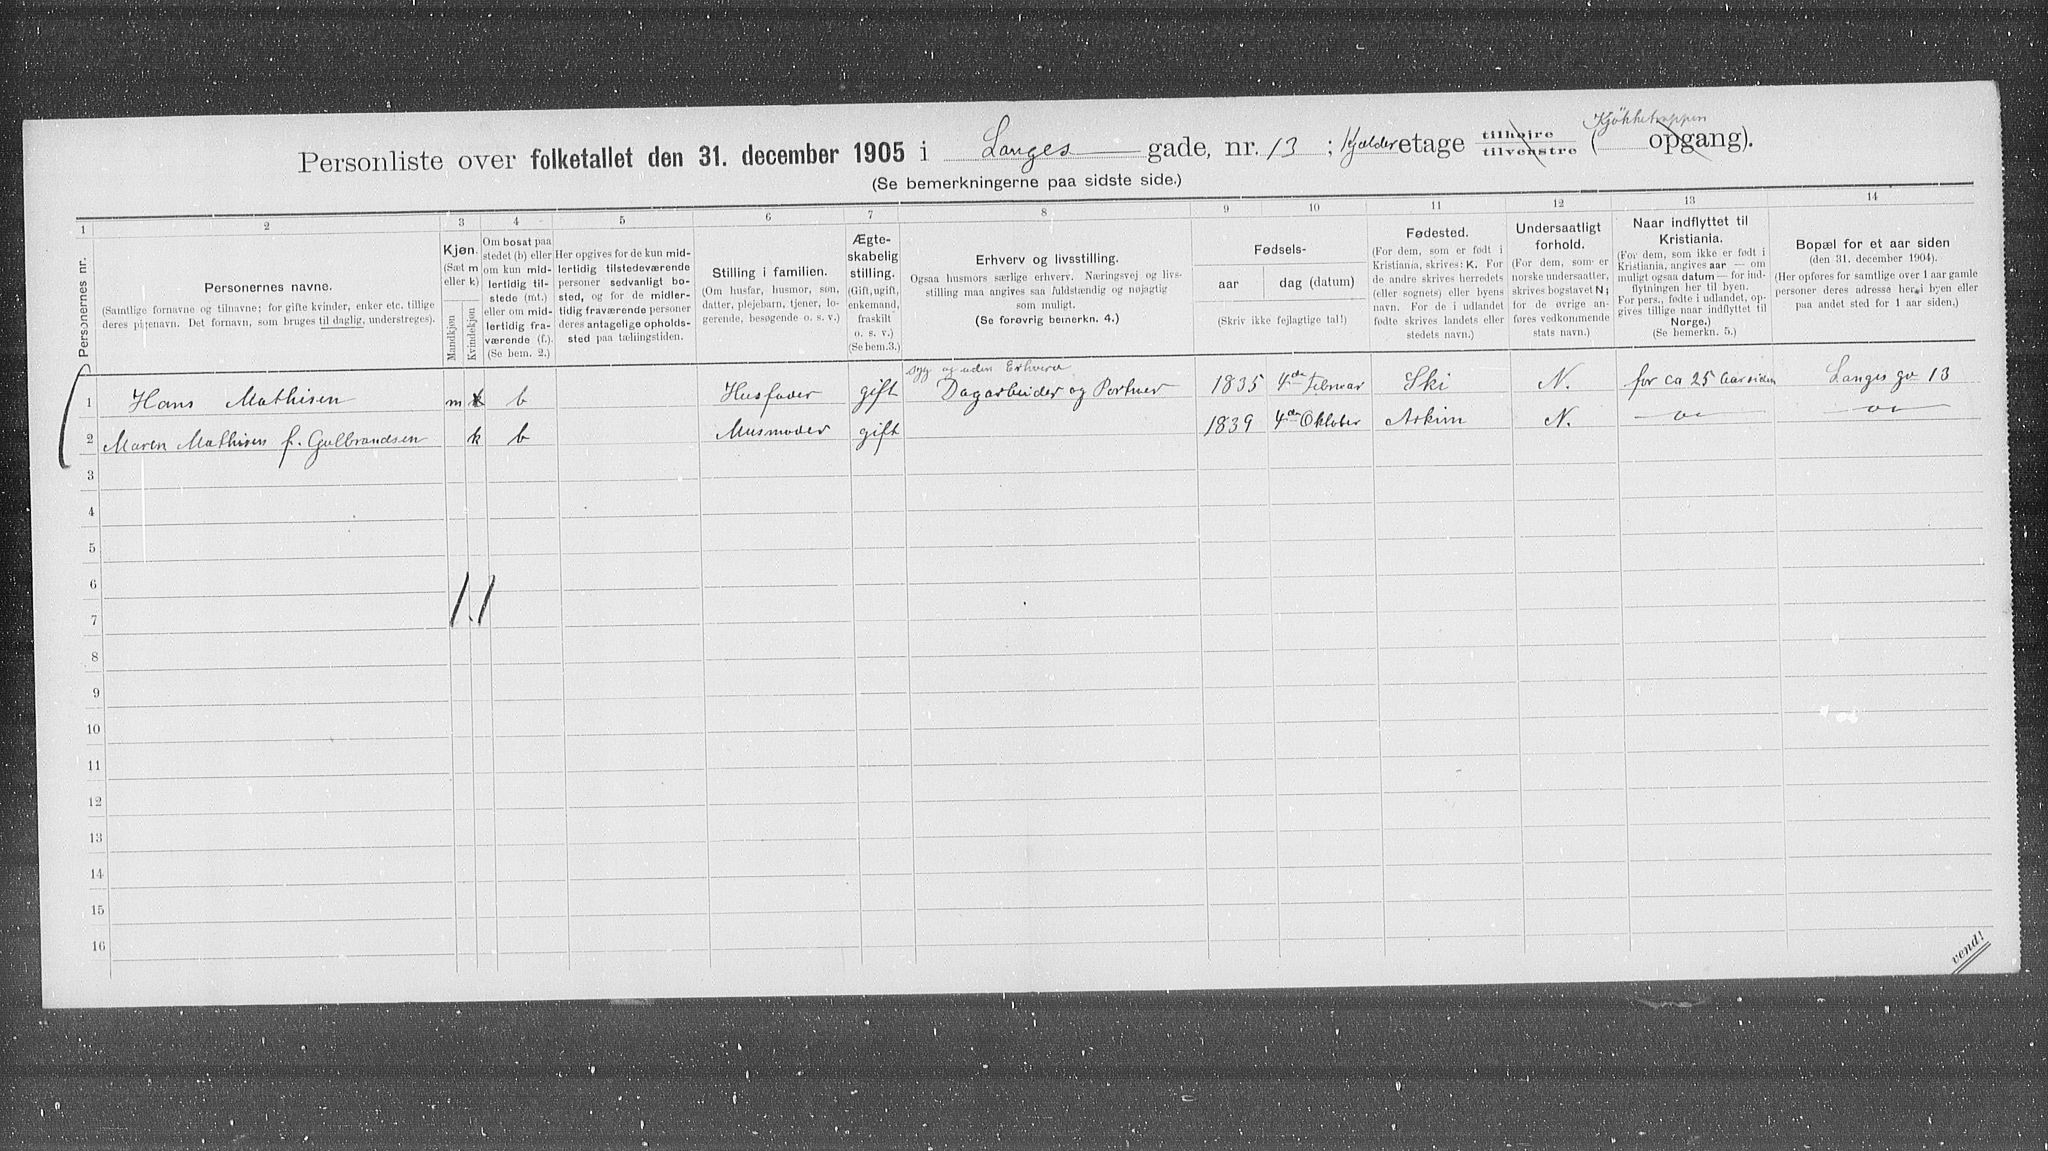 Personliste over folketallet den 31. december 1905 i Langes gade, nr. 13 ; Kjælder etage tilhøjre tilvenstre ( Kjøkkentrappen opgang).
(Se bemerkningerne paa sidste side.)
1 2 3 4 5 6 7 8 9 10 11 12 13 14
Personernes nr.
Personernes navne.
(Samtlige fornavne og tilnavne; for gifte kvinder, enker etc. tillige
deres pigenavn. Det fornavn, som bruges til daglig, understreges).
Kjøn.
(Sæt m
eller k)
Mandkjøn
Kvindekjøn
Om bosat paa
stedet (b) eller
om kun mid-
lertidig til-
stede (mt.)
eller om mid-
lertidig fra-
værende (f.).
(Se bem. 2.)
Her opgives for de kun mid-
lertidig tilstedeværende
personer sedvanligt bo-
sted, og for de midler-
tidig fraværende personer
deres antagelige opholds-
sted paa tællingstiden.
Stilling i familien.
(Om husfar, husmor, søn,
datter, plejebarn, tjener, lo-
gerende, besøgende o. s. v.)
Ægte-
skabelig
stilling.
(Gift, ugift,
enkemand,
fraskilt
o. s. v.)
(Se bem.3.)
Erhverv og livsstilling.
Ogsaa husmors særlige erhverv. Næringsvej og livs-
stilling maa angives saa fuldstændig og nøjagtig
som muligt.
(Se forøvrig bemerkn. 4.)
Fødsels-
aar dag (datum)
(Skriv ikke fejlagtige tal!)
Fødested.
(For dem, som er født i
Kristiania, skrives: K. For
de andre skrives herredets
(eller sognets) eller byens
navn. For de i udlandet
fødte skrives landets eller
stedets navn.)
Undersaatligt
forhold.
(For dem, som er
norske undersaatter,
skrives bogstavet N;
for de øvrige an-
føres vedkommende
stats navn.)
Naar indflyttet til
Kristiania.
(For dem, som ikke er født i
Kristiania, angives aar — om
muligt ogsaa datum — for ind-
flytningen her til byen.
For pers., fødte i udlandet, op-
gives tillige naar indflyttet til
Norge.)
(Se bemerkn. 5.)
Bopæl for et aar siden
(den 31. december 1904).
(Her opføres for samtlige over 1 aar gamle
personer deres adresse her i byen eller
paa andet sted for 1 aar siden.)
syg og uden Erhverv
1 Hans Mathisen m k b Husfader gift Dagarbeider og Portner 1835 4de Februar Ski N. for ca 25 Aar siden Langes ga 13
2 Maren Mathisen f. Gulbrandsen k b Musmoder gift 1839 4de Oktober Askim N. — " — — " —
3
4
5
6
1 . 1
7
8
9
10
11
12
13
14
15
16
vend!